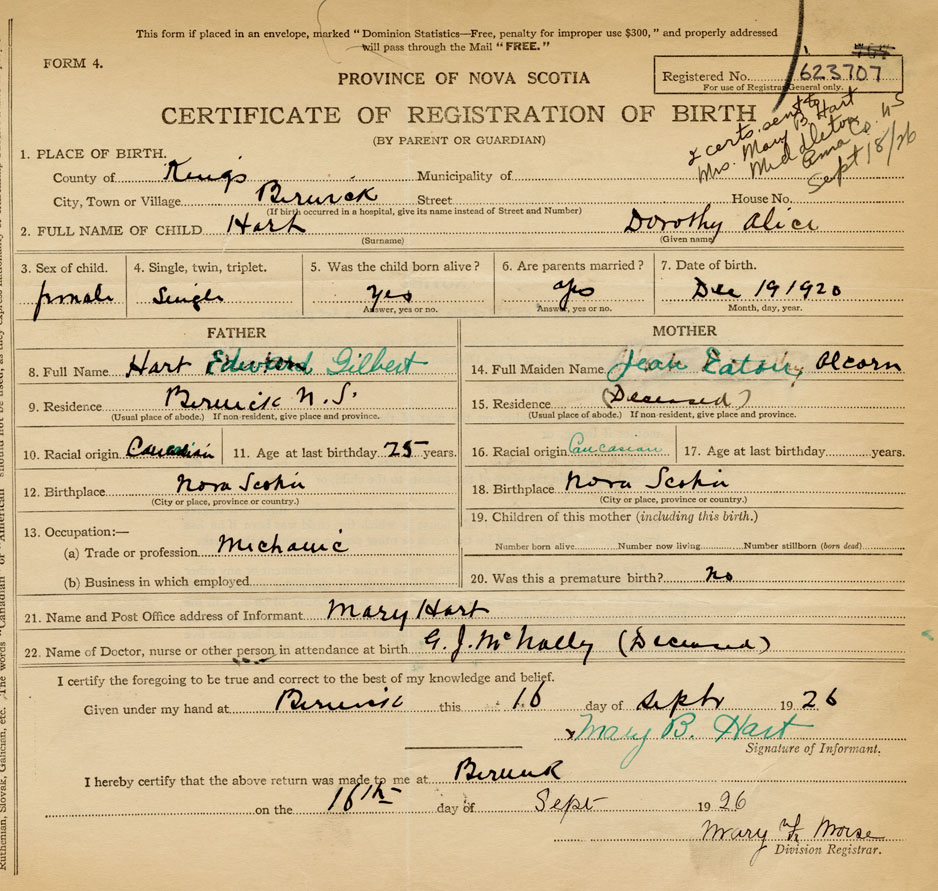 This form if placed in an envelope, marked "Dominion Statistics—Free, penalty for improper use $300," and properly addressed
will pass through the Mail "FREE."
FORM 4.
PROVINCE OF NOVA SCOTIA
Registered No. 623707
For use of Registrar General only.
CERTIFICATE OF REGISTRATION OF BIRTH
(BY PARENT OR GUARDIAN)
2 certs. sent to
Mrs. Mary B. Hart
Middleton
Anna Co.
Sept 18/26
1. PLACE OF BIRTH.
County of Kings Municipality of
City, Town or Village Berwick Street House No.
(If birth occurred in a hospital, give its name instead of Street and Number)
2. FULL NAME OF CHILD Hart Dorothy Alice
(Surname) (Given name)
3. Sex of child. 4. Single, twin, triplet. 5. Was the child born alive? 6. Are parents married? 7. Date of birth.
female Single Yes Yes Dec 19 1920
Answer, yes or no. Answer, yes or no. Month, day, year.
FATHER
8. Full Name Hart Edward Gilbert
9. Residence Berwick N.S.
(Usual place of abode.) If non-resident, give place and province.
10. Racial origin 11. Age at last birthday 25 years.
12. Birthplace Nova Scotia
(City or place, province or country.)
13. Occupation:—
(a) Trade or profession Mechanic
(b) Business in which employed
MOTHER
14. Full Maiden Name Jean Eaton Alcorn
15. Residence (Deceased)
(Usual place of abode.) If non-resident, give place and province.
16. Racial origin Caucasian 17. Age at last birthday years.
18. Birthplace Nova Scotia
(City or place, province or country.)
19. Children of this mother (including this birth.)
Number born alive Number now living Number stillborn (born dead)
20. Was this a premature birth? no
21. Name and Post Office address of Informant Mary Hart
22. Name of Doctor, nurse or other person in attendance at birth G. J. McNally (Deceased)
I certify the foregoing to be true and correct to the best of my knowledge and belief.
Given under my hand at Berwick this 16 day of Septr 1926
x Mary B. Hart
Signature of Informant.
I hereby certify that the above return was made to me at Berwick
on the 16th day of Sept 1926
Mary F. Morse
Division Registrar.
Ruthenian, Slovak, Galician, etc. The words "Canadian" or "American" should not be used, as they express